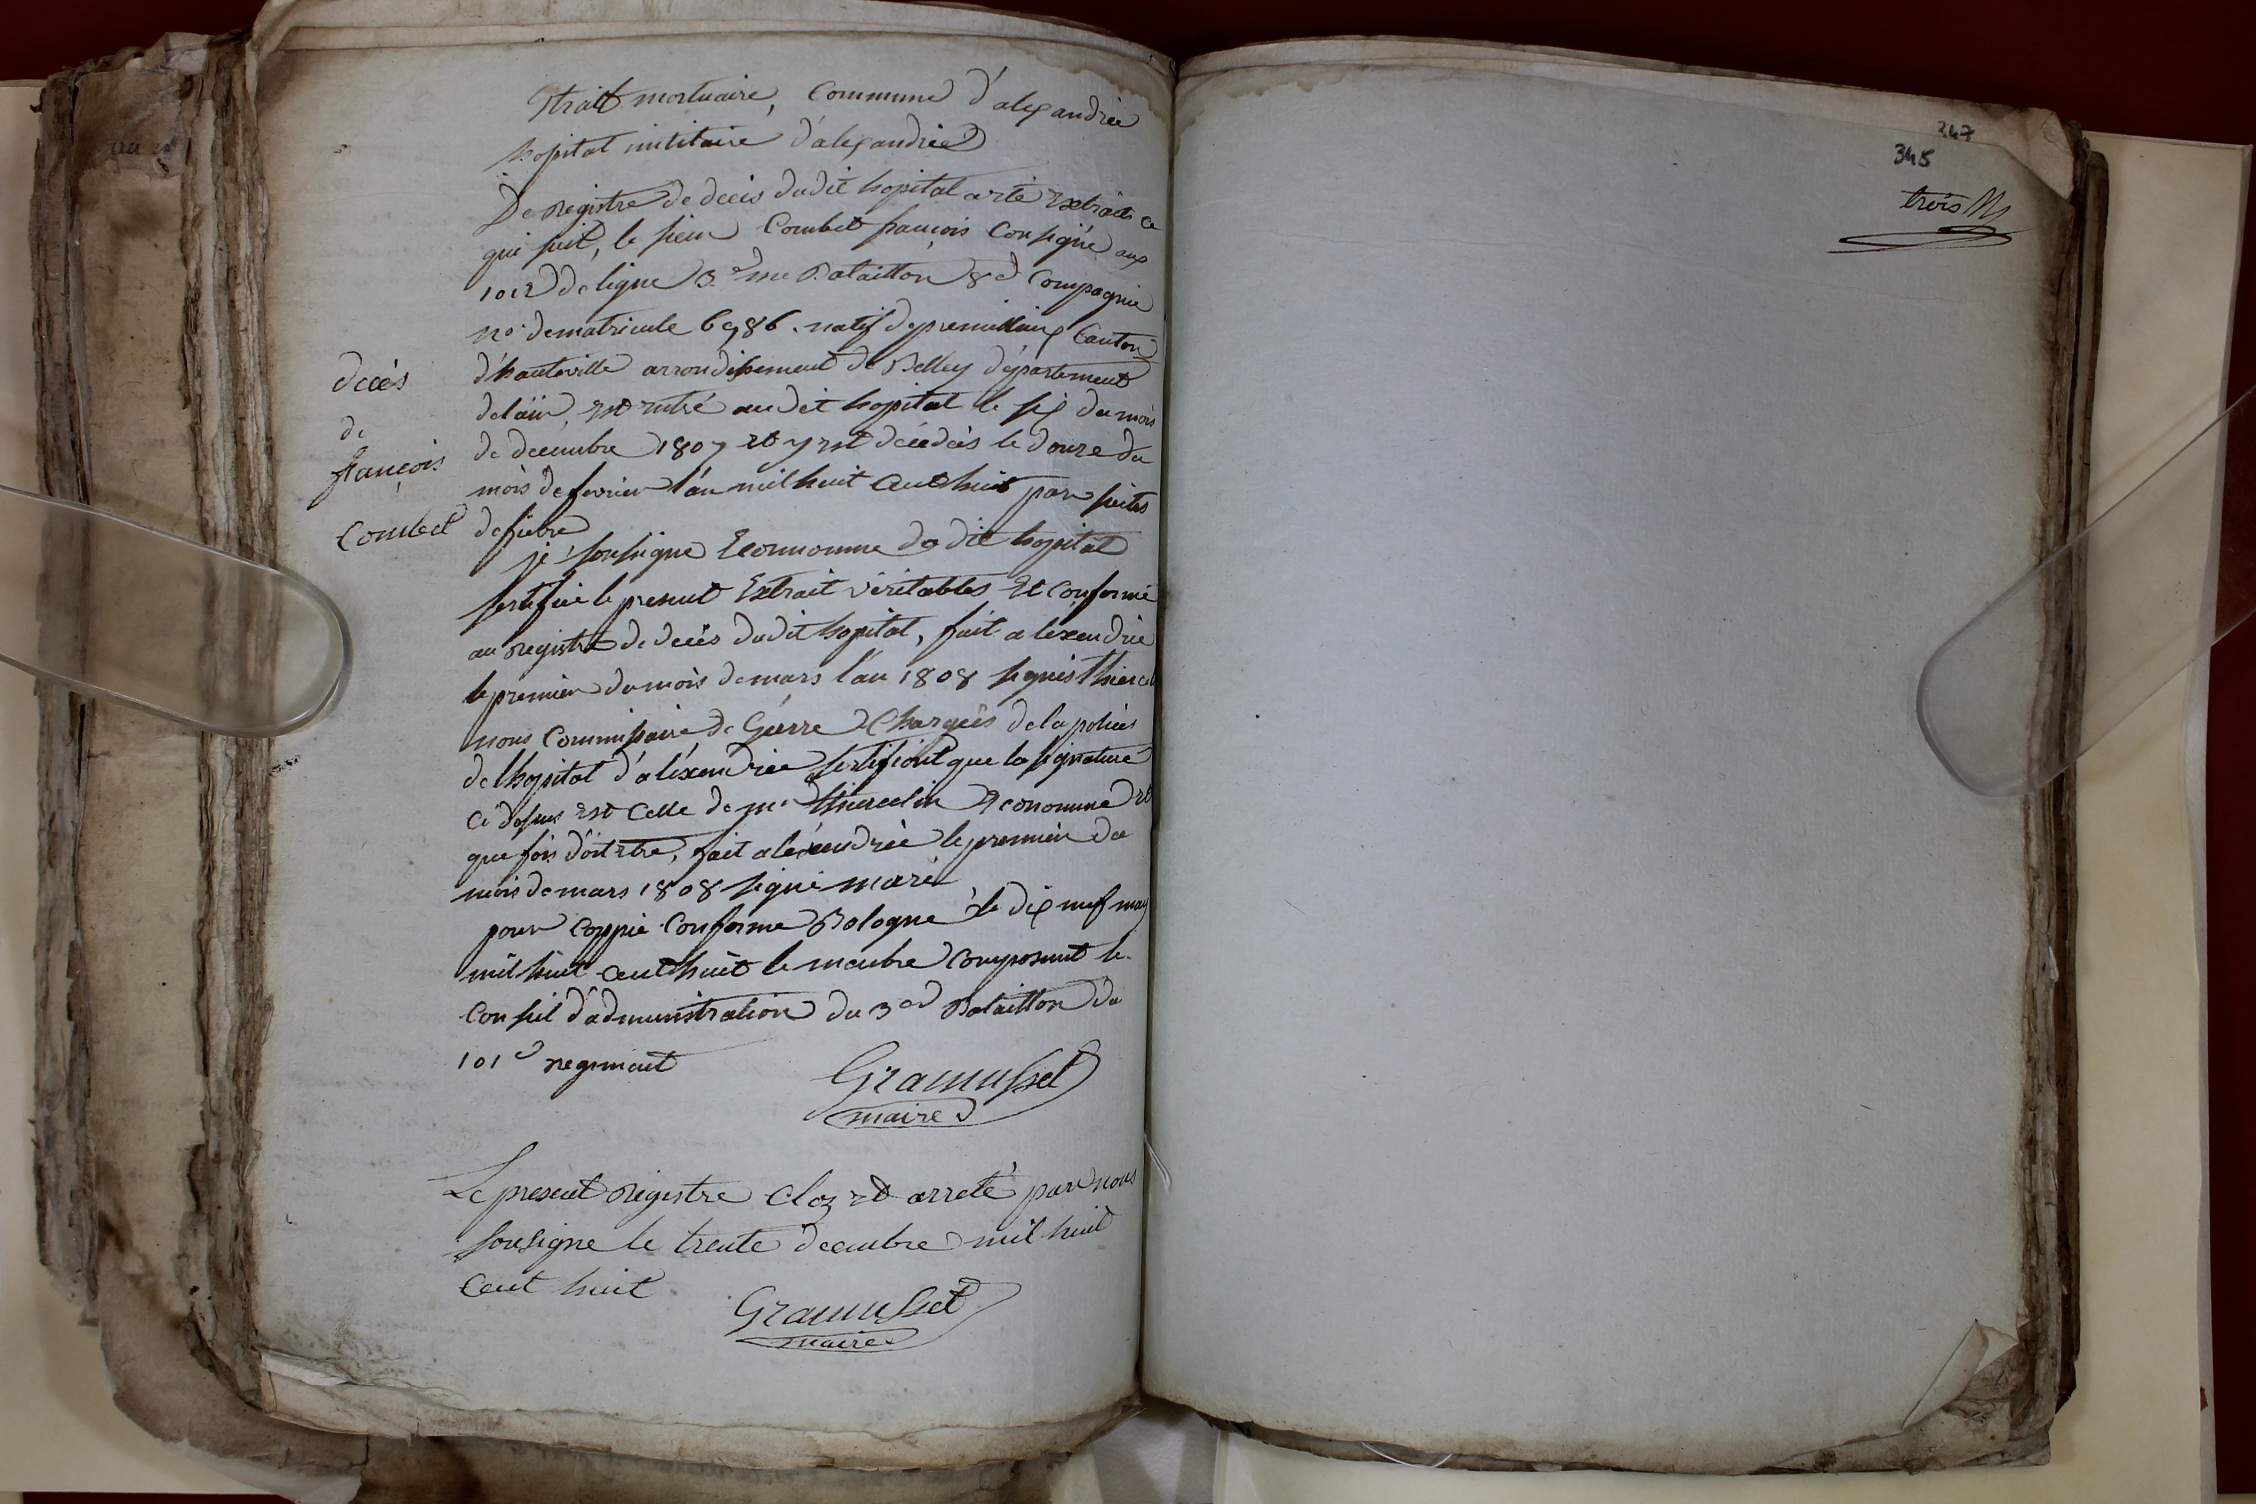 Extrait mortuaire, Commune d'alexandrie
hopital militaire d'alexandrie
De registre de décés dudit hopital a été Extrait ce
qui suit, le sieur Combet françois Consigné aux
101e de ligne 3.me Bataillon 8e Compagnie
no. de matricule 6986. natif de premillieux Canton
d'hauteville arrondissement de Belley département
delain, est entré au dit hopital le six du mois
de decembre 1807 et y est décédés le douze du
mois de fevrier l'an mil huit cent huit par suites
de fievre
décés
de
françois
Combet
je soussigne Econnomme de dit hopital
sertifié le present Extrait véritables Et Conforme
au registre de decés dudit hopital, fait a léxendrie
le premier du mois de mars l'an 1808 signés thiercelin
nous Commissaire de Guerre Chargées de la polices
de l'hopital d'aléxendrie sertifiont que la signature
Ci dessus est Celle de mr thiercelin Econome et
que fois doit etre, fait aléxendrie le premier du
mois de mars 1808 signé maré
pour Coppie Conforme Bologne le dix neuf may
mil huit cent huit le membre Composent le
Conseil d'administration du 3e Bataillon du
101e regiment
Gramusset
maire
Le present registre Cloz et arreté par nous
sousigne le trente decembre mil huit
Cent huit
Gramusset
maire
347
345
trois